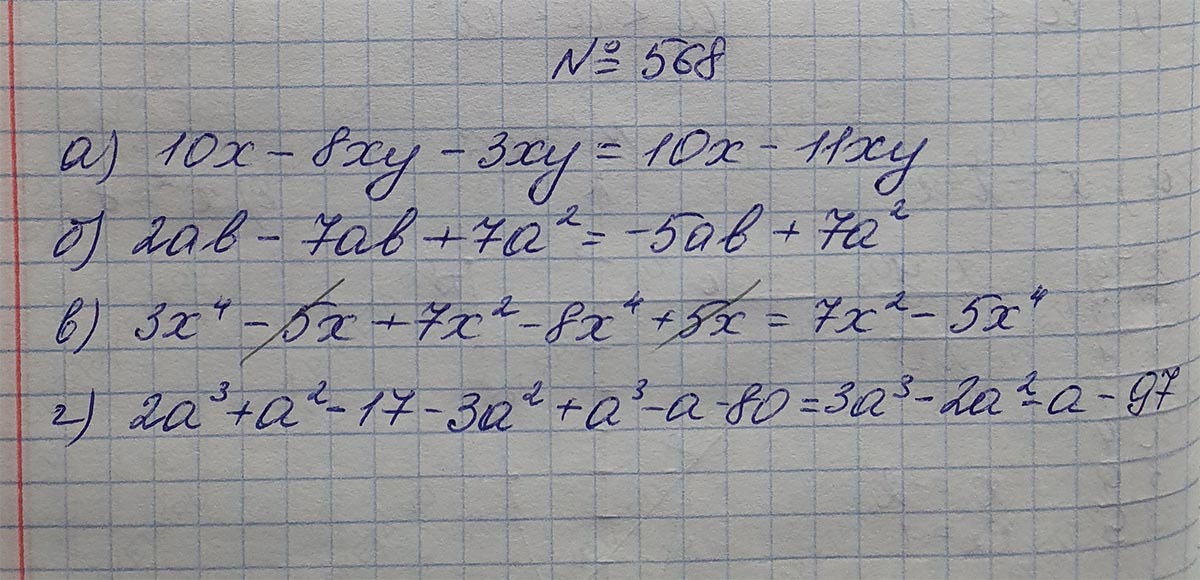 № 568
а) 10x - 8xy - 3xy = 10x - 11xy
б) 2ab - 7ab + 7a² = -5ab + 7a²
в) 3x⁴ - 5x + 7x² - 8x⁴ + 5x = 7x² - 5x⁴
г) 2a³ + a² - 17 - 3a² + a³ - a - 80 = 3a³ - 2a² - a - 97